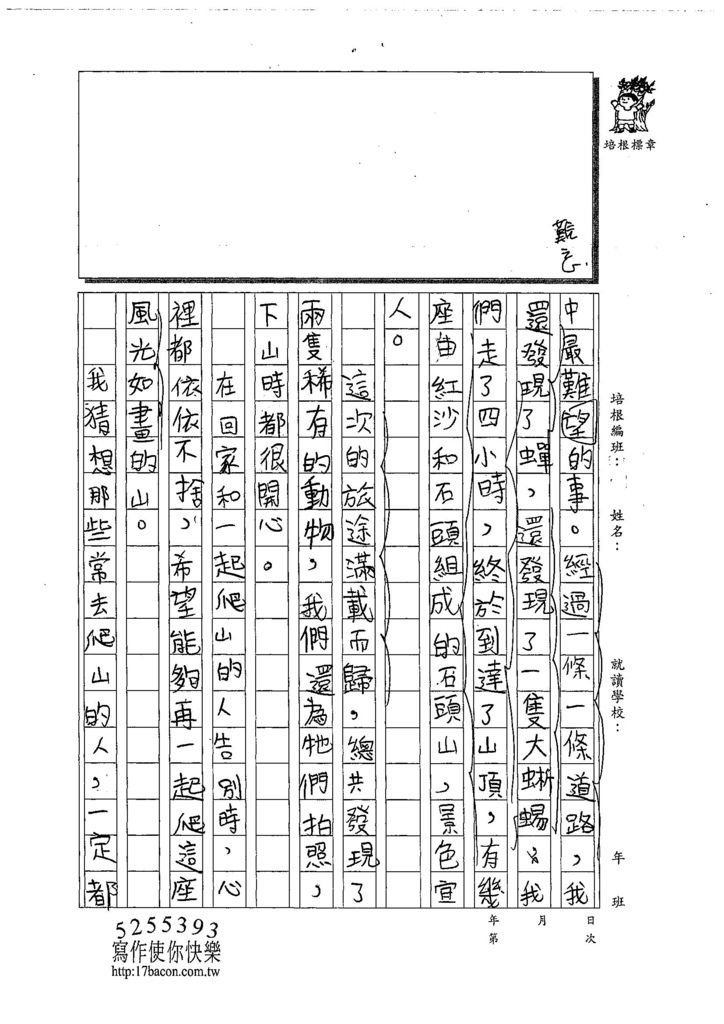 培根標章
難忘
培根編班：
姓名：
就讀學校：
年 班
中最難望的事。經過一條一條道路，我
還發現了蟬，還發現了一隻大蜥蜴。我
們走了四小時，終於到達了山頂，有幾
座由紅沙和石頭組成的石頭山，景色宜
人。
這次的旅途滿載而歸，總共發現了
兩隻稀有的動物，我們還為牠們拍照，
下山時都很開心。
在回家和一起爬山的人告別時，心
裡都依依不捨，希望能夠再一起爬這座
風光如畫的山。
我猜想那些常去爬山的人，一定都
日 次
月
年 第
5255393
寫作使你快樂
http:17bacon.com.tw